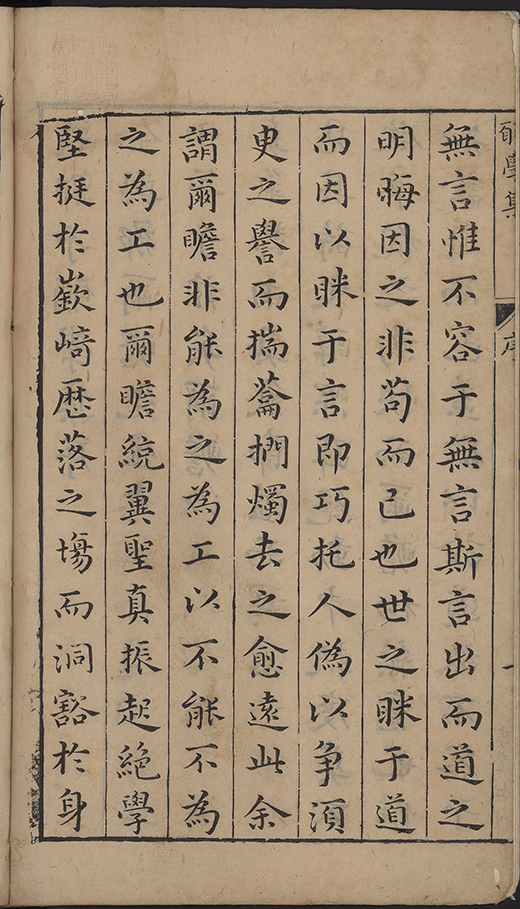 學集 序
無言惟不容于無言斯言出而道之
明晦因之非苟而已也世之眯于道
而因以眯于言即巧托人偽以争須
臾之譽而揣蘥捫燭去之愈遠此余
謂爾瞻非能為之為工以不能不為
之為工也爾瞻統翼聖真振起絕學
堅挺於嶔﨑歷落之塲而洞豁於身